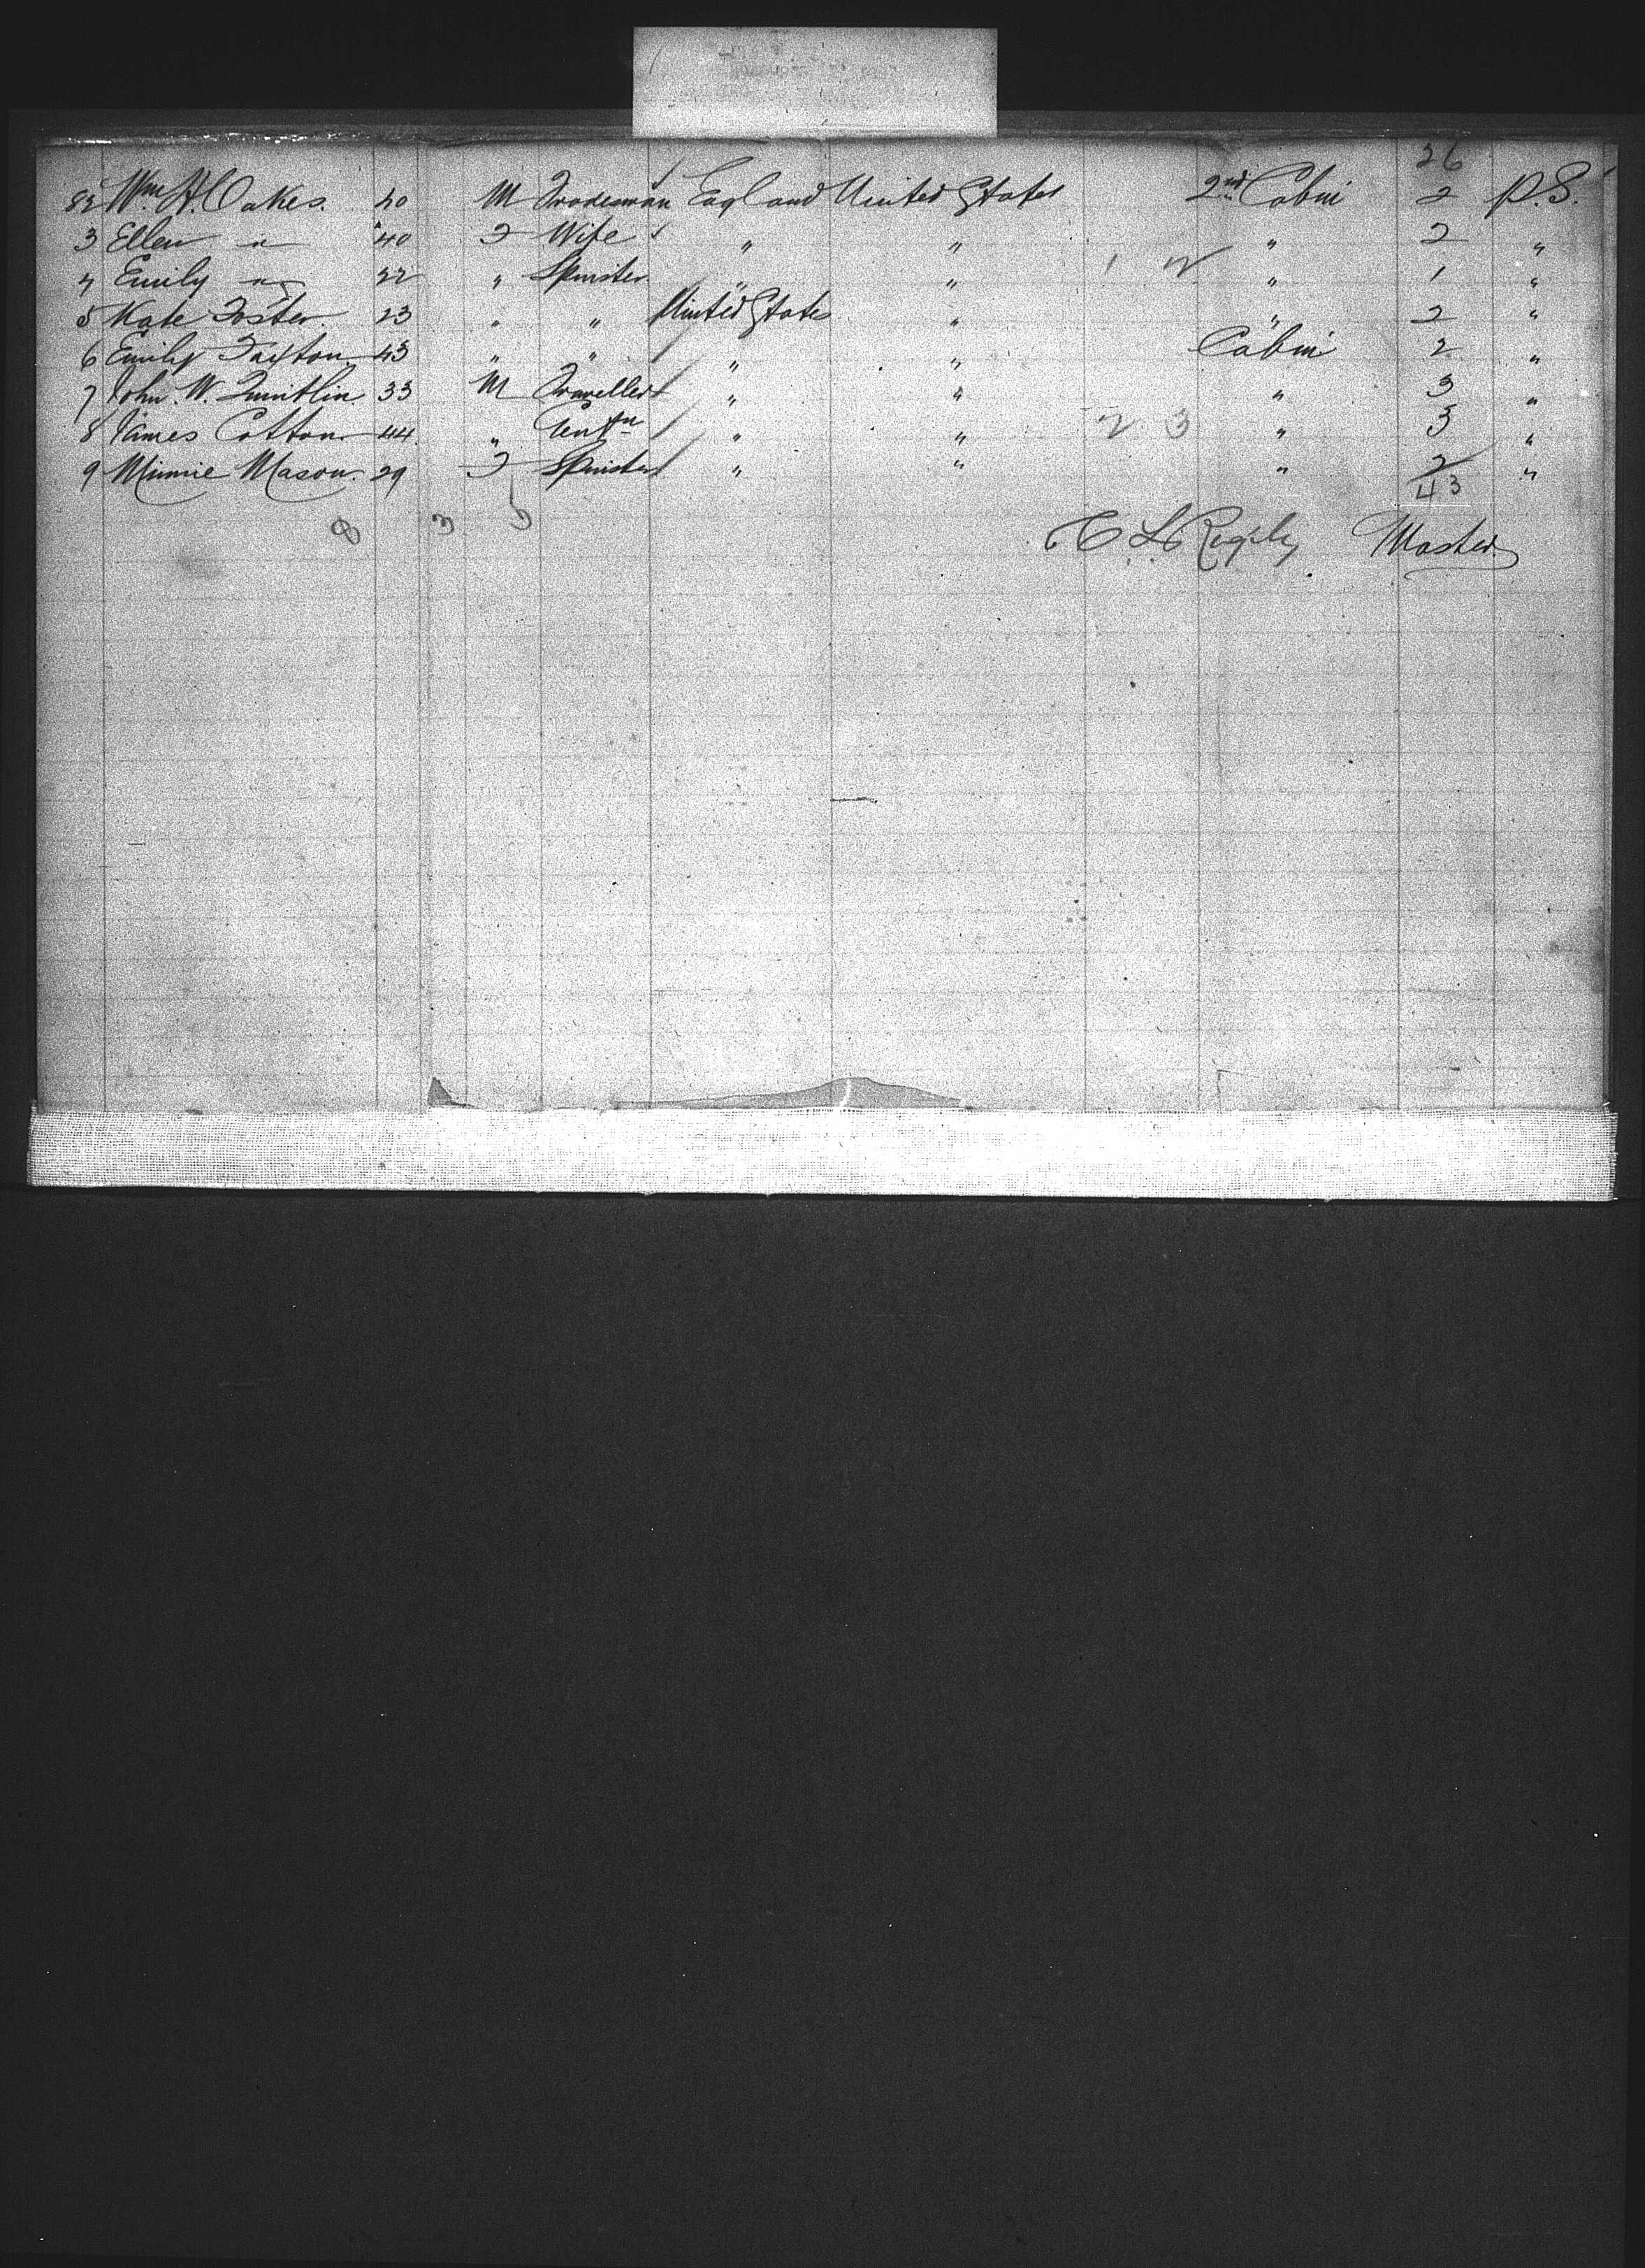 26
82 Wm. H. Oakes. 40 M Tradesman England United States 2nd Cabin 2 P.S.
3 Ellen " 40 F Wife " " " 2 "
4 Emily " 22 " Spinster " " 1 2 " 1 "
5 Kate Foster. 23 " " United States " " 2 "
6 Emily 43 " " " " Cabin 2 "
7 John. W. 33 M Traveller " " " 3 "
8 James Cotton. 44 " " " 2 3 " 3 "
9 Minnie Mason. 29 F Spinster " " " 2 "
43
8 3 5 Master.